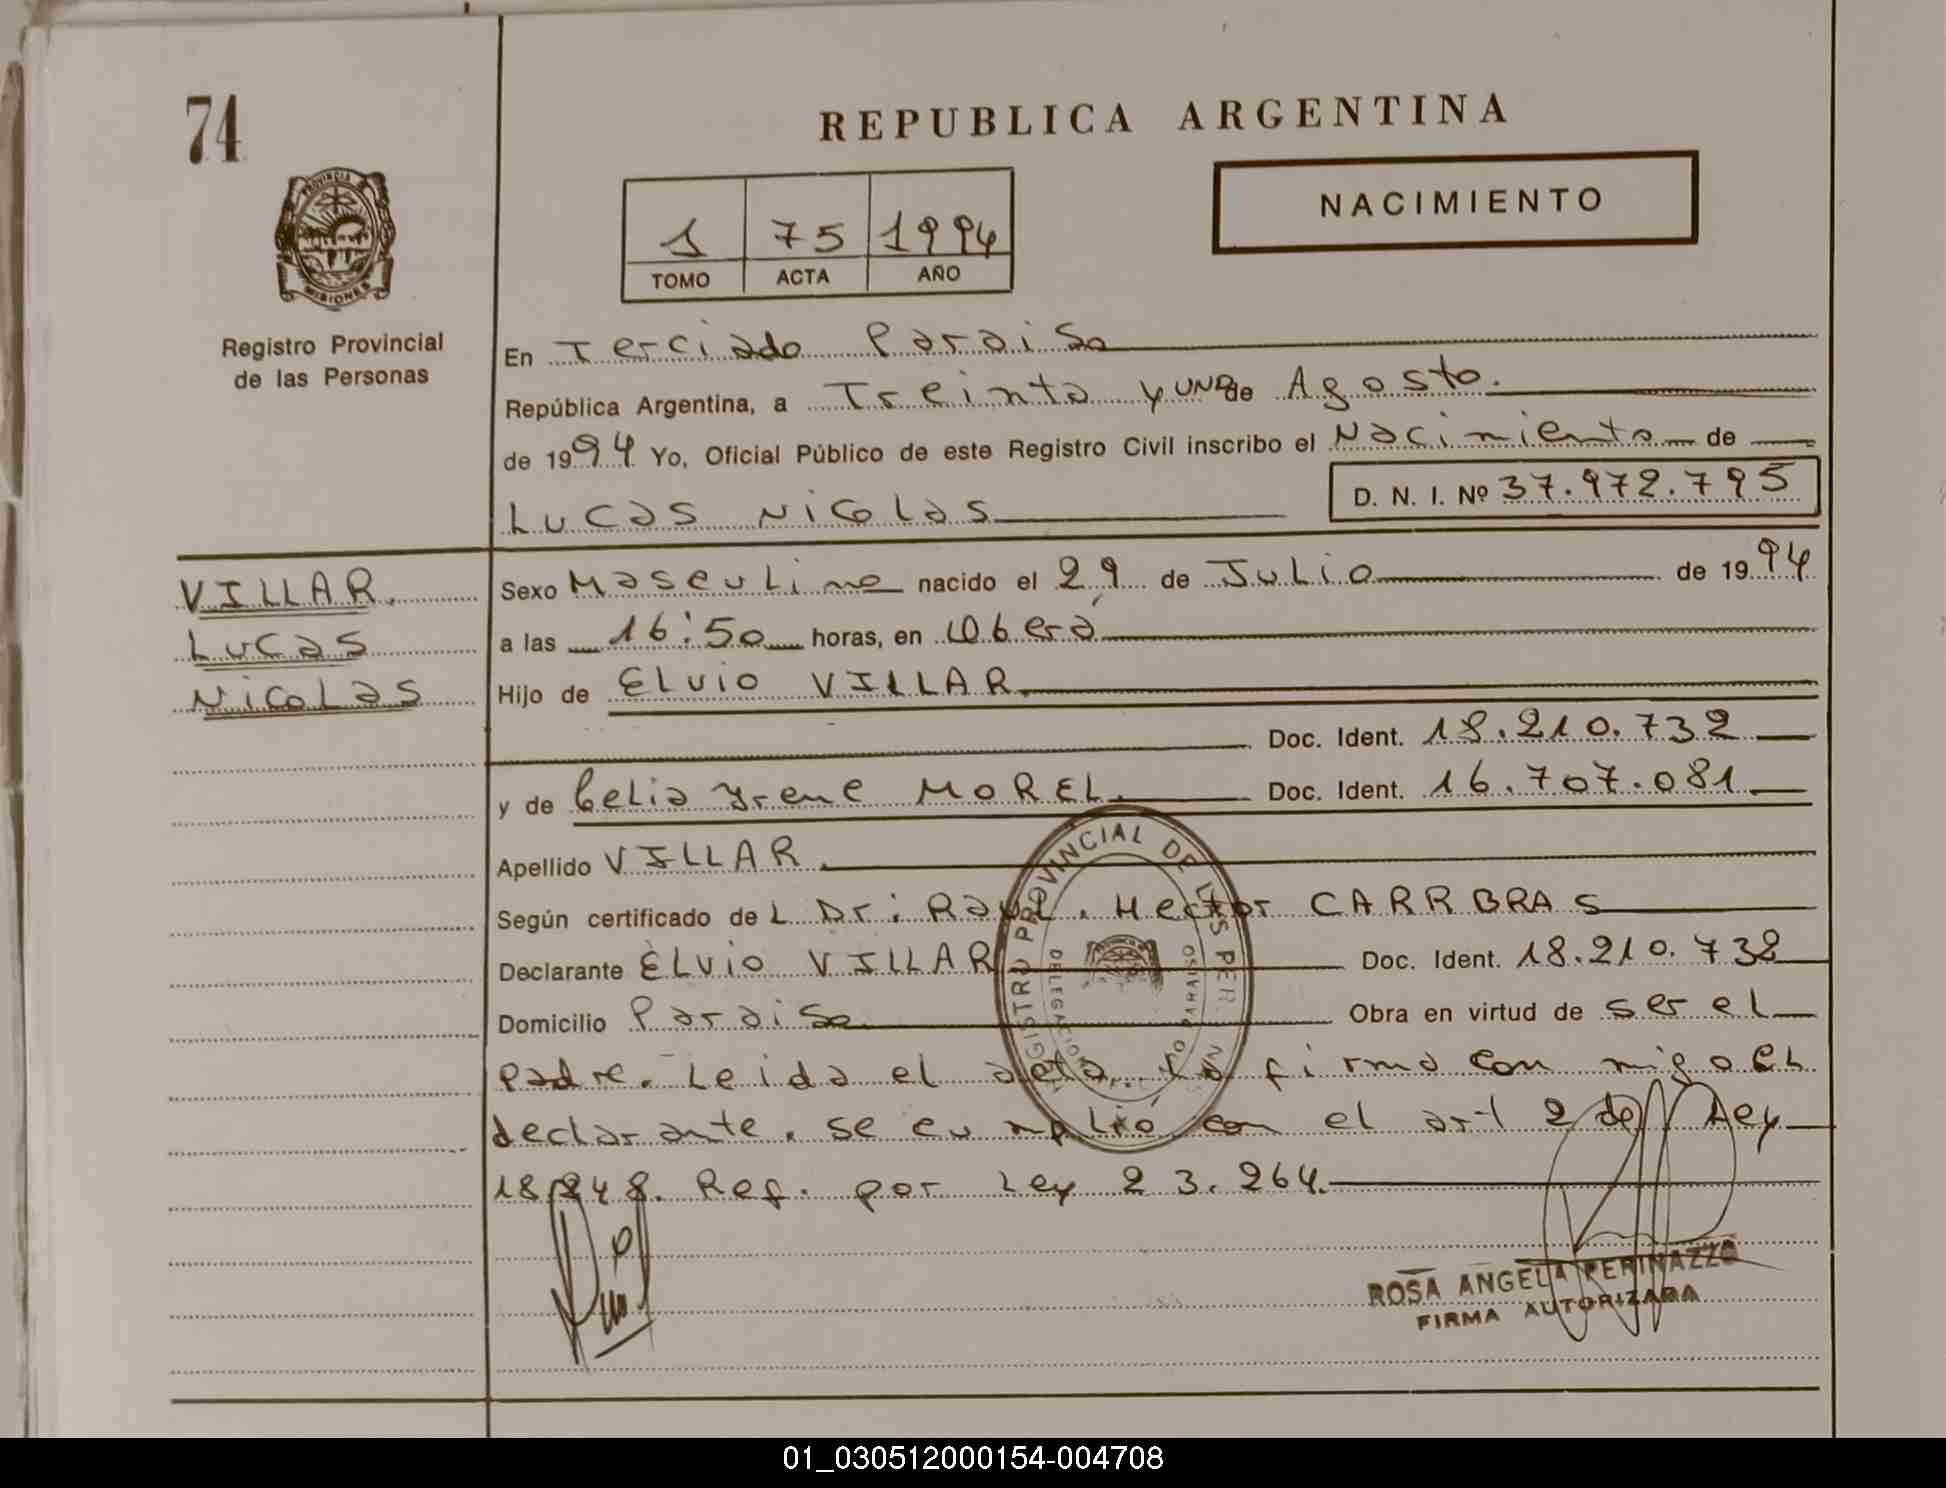 74
REPUBLICA ARGENTINA
NACIMIENTO
1 75 1994
TOMO ACTA AÑO
PROVINCIA DE
MISIONES
Registro Provincial
de las Personas
En Terciado Paraiso
República Argentina, a Treinta y UNO de Agosto.
de 1994 Yo, Oficial Público de este Registro Civil inscribo el Nacimiento de
D. N. I. Nº 37.972.795
Lucas Nicolas
VILLAR.
Lucas
Nicolas
Sexo Masculino nacido el 29 de Julio de 1994
a las 16:50 horas, en Oberá
Hijo de Elvio VILLAR.
Doc. Ident. 18.210.732
y de Celia Yrene MOREL. Doc. Ident. 16.707.081
Apellido VILLAR.
Según certificado del Dr: Raul. Hector CARRBRAS
Declarante Elvio VILLAR Doc. Ident. 18.210.732
Domicilio Paraiso Obra en virtud de ser el
padre. Leida el acta, la firma con migo el
declarante. se cumplió con el art 2 de Ley
18.248. Ref. por Ley 23.264.
REGISTRO PROVINCIAL DE LAS PER
DELEGACION
PARAISO
ROSA ANGELA PERINAZZO
FIRMA AUTORIZADA
01_030512000154-004708